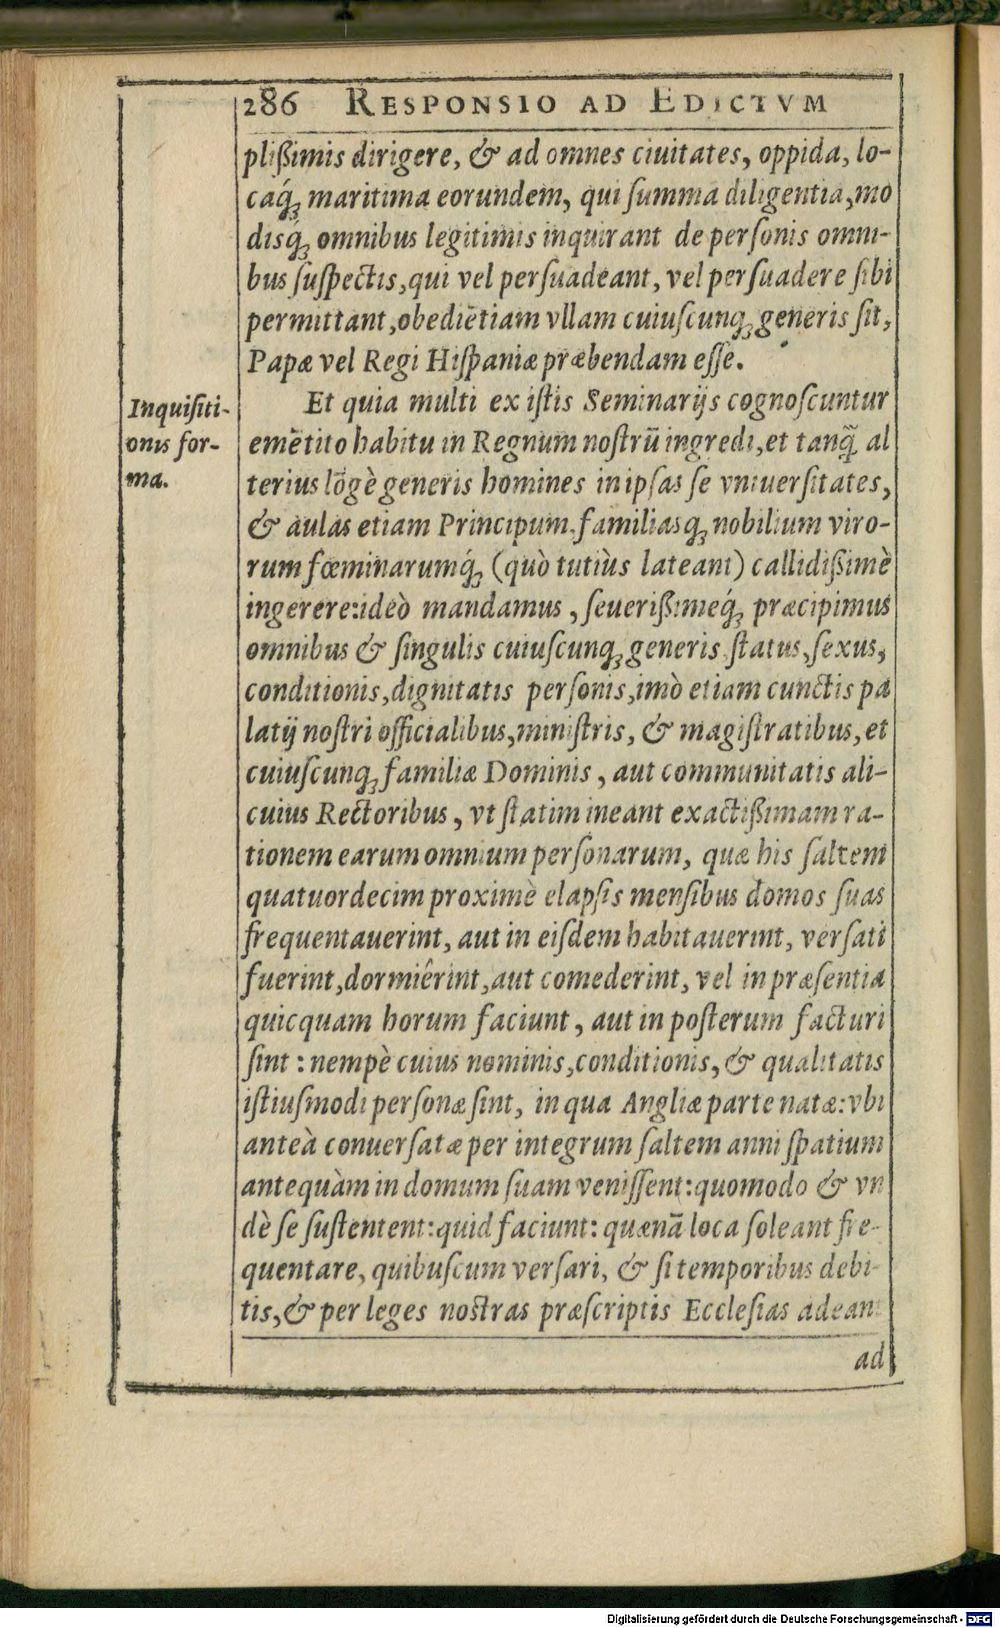 286 RESPONSIO AD EDICTVM
plißimis dirigere, & ad omnes ciuitates, oppida, lo-
caq́ꝫ maritima eorundem, qui ſumma diligentia, mo
disq́ꝫ omnibus legitimis inquirant de perſonis omni-
bus ſuſpectis, qui vel perſuadeant, vel perſuadere ſibi
permittant, obediētiam vllam cuiuſcunqꝫ generis ſit,
Papæ vel Regi Hiſpaniæ præbendam eſſe.
Inquiſiti-
onis for-
ma.
Et quia multi ex iſtis Seminarijs cognoſcuntur
emētito habitu in Regnum noſtrū ingredi, et tanq̄ al
terius lōgè generis homines in ipſas ſe vniuerſitates,
& aulas etiam Principum, familiasqꝫ nobilium viro-
rum fœminarumq́ꝫ (quò tutiùs lateant) callidißimè
ingerere: ideò mandamus, ſeuerißimeq́ꝫ præcipimus
omnibus & ſingulis cuiuſcunqꝫ generis, ſtatus, ſexus,
conditionis, dignitatis perſonis, imò etiam cunctis pa
latij noſtri officialibus, miniſtris, & magiſtratibus, et
cuiuſcunqꝫ familiæ Dominis, aut communitatis ali-
cuius Rectoribus, vt ſtatim ineant exactißimam ra-
tionem earum omnium perſonarum, quæ his ſaltem
quatuordecim proximè elapſis menſibus domos ſuas
frequentauerint, aut in eiſdem habitauerint, verſati
fuerint, dormiêrint, aut comederint, vel in præſentia
quicquam horum faciunt, aut in poſterum facturi
ſint: nempè cuius nominis, conditionis, & qualitatis
iſtiuſmodi perſonæ ſint, in qua Angliæ parte natæ: vbi
anteà conuerſatæ per integrum ſaltem anni ſpatium
antequàm in domum ſuam veniſſent: quomodo & vn
dè ſe ſuſtentent: quid faciunt: quænā loca ſoleant fre-
quentare, quibuſcum verſari, & ſi temporibus debi-
tis, & per leges noſtras præſcriptis Eccleſias adeant
ad
Digitalisierung gefördert durch die Deutsche Forschungsgemeinschaft - DFG